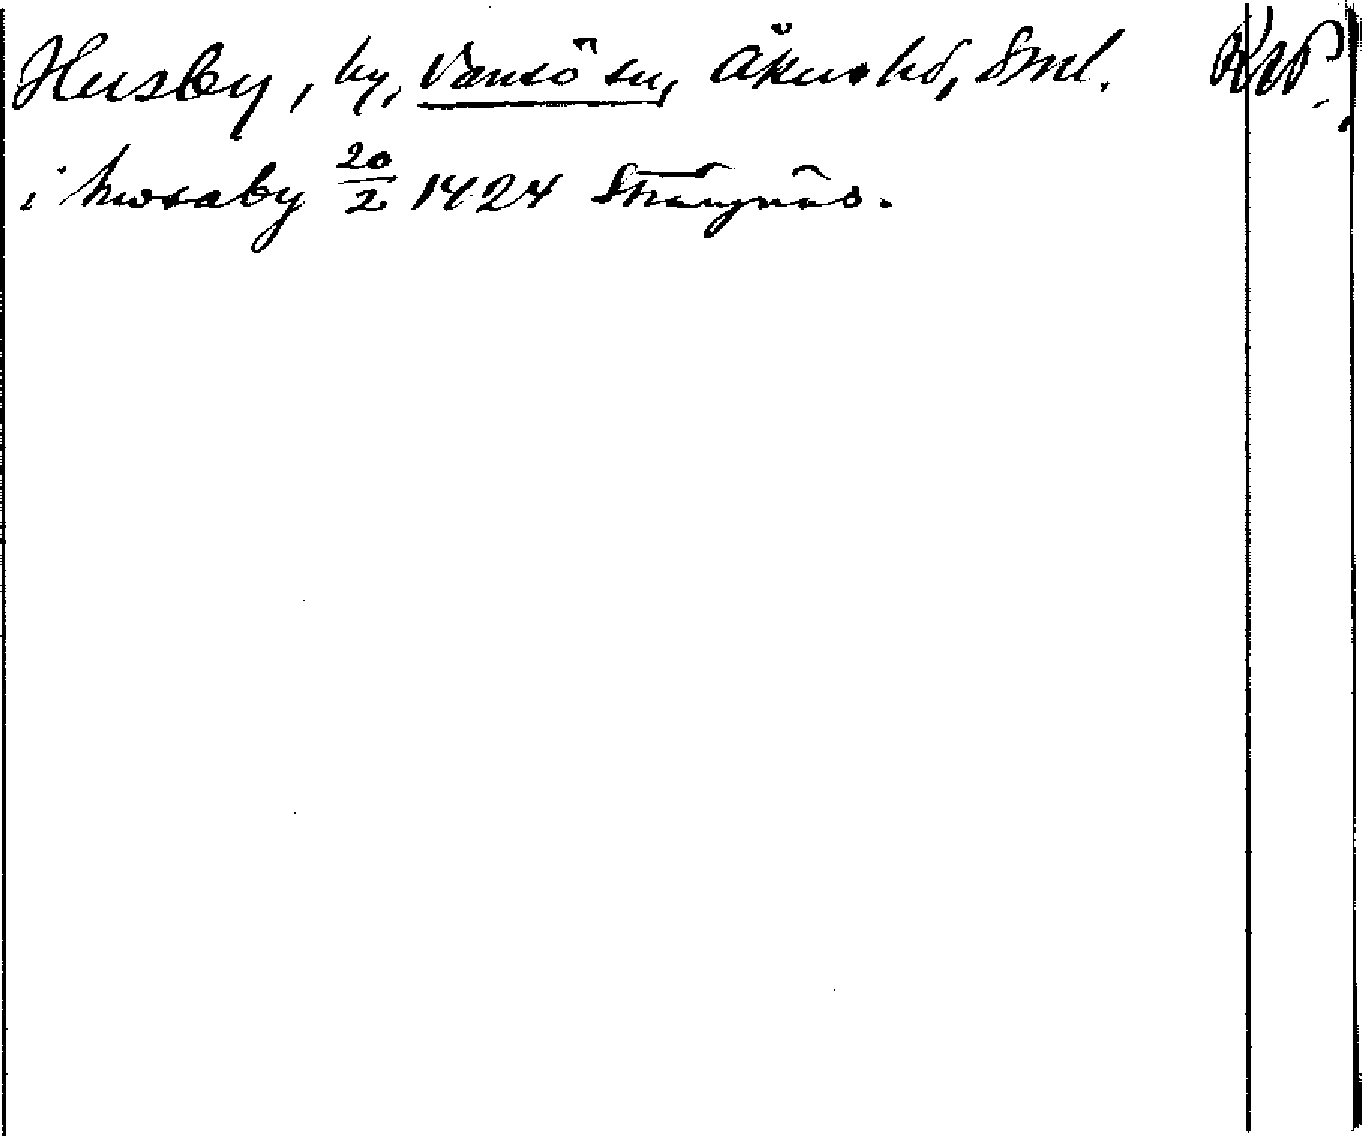 Husby, by, Vansö sn, Åkers hd, Sml. RAP.
i hwsaby 20/2 1424 Strängnäs.